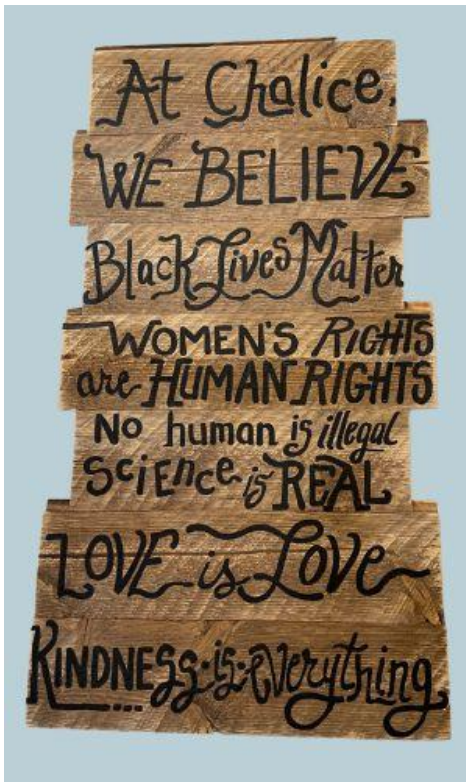 At Chalice,
WE BELIEVE
Black Lives Matter
WOMEN'S RIGHTS
are HUMAN RIGHTS
No human is illegal
Science is REAL
LOVE is Love
KINDNESS is everything